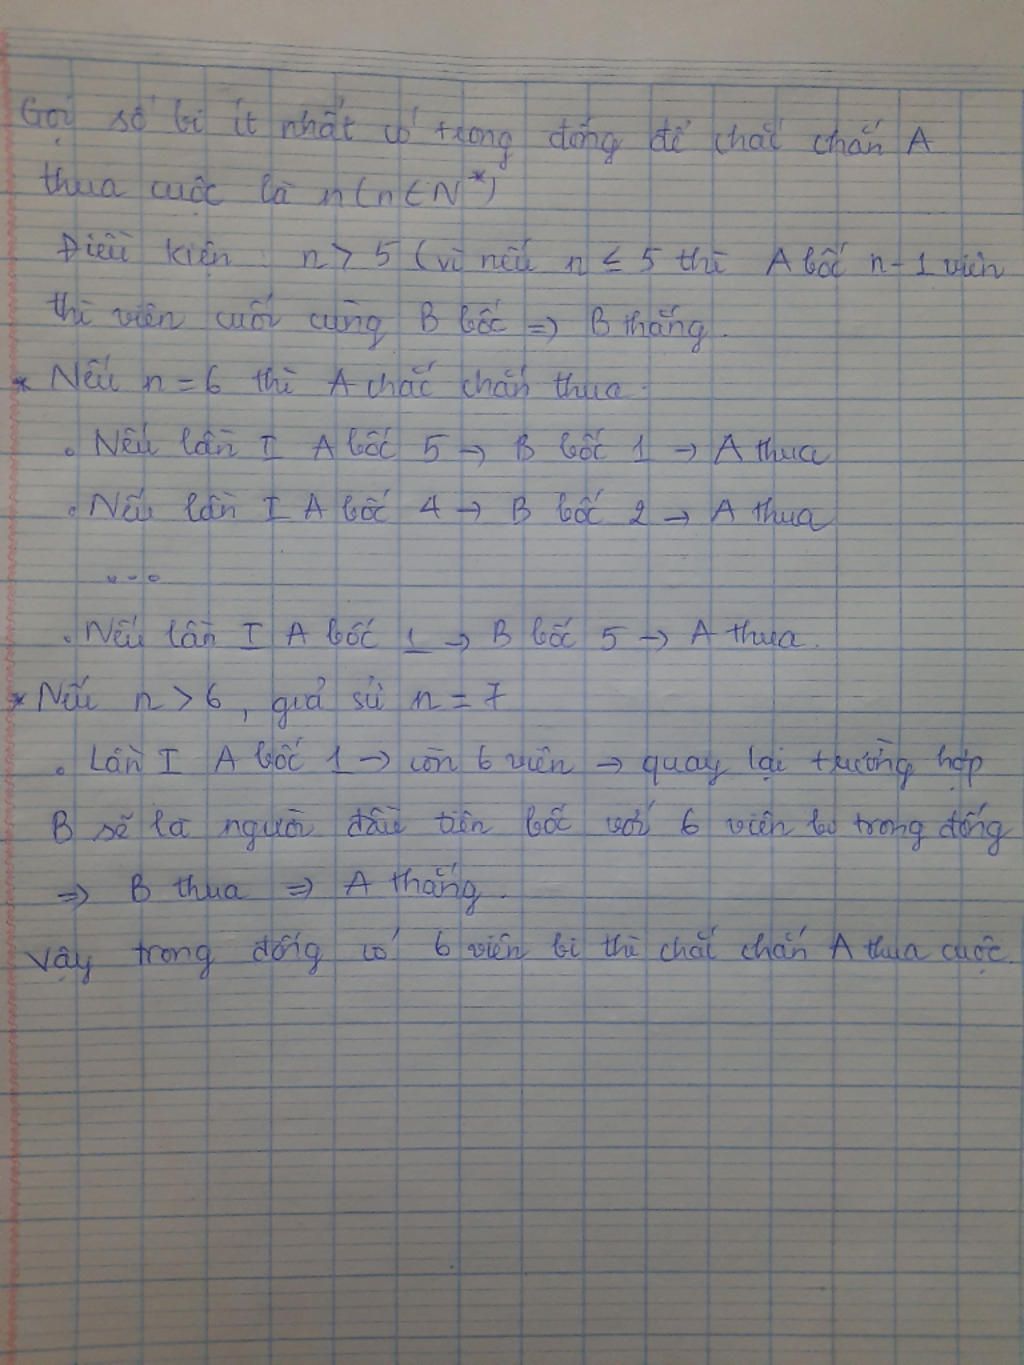 Gọi số bi ít nhất có trong đống để chắc chắn A
thua cuộc là n (n ∈ N*)
Điều kiện: n > 5 (vì nếu n ≤ 5 thì A bốc n - 1 viên
thì viên cuối cùng B bốc => B thắng.
* Nếu n = 6 thì A chắc chắn thua.
. Nếu lần I A bốc 5 → B bốc 1 → A thua
. Nếu lần I A bốc 4 → B bốc 2 → A thua
...
. Nếu lần I A bốc 1 → B bốc 5 → A thua.
* Nếu n > 6, giả sử n = 7
. Lần I A bốc 1 → còn 6 viên → quay lại trường hợp
B sẽ là người đầu tiên bốc với 6 viên bi trong đống
=> B thua => A thắng.
Vậy trong đống có 6 viên bi thì chắc chắn A thua cuộc.